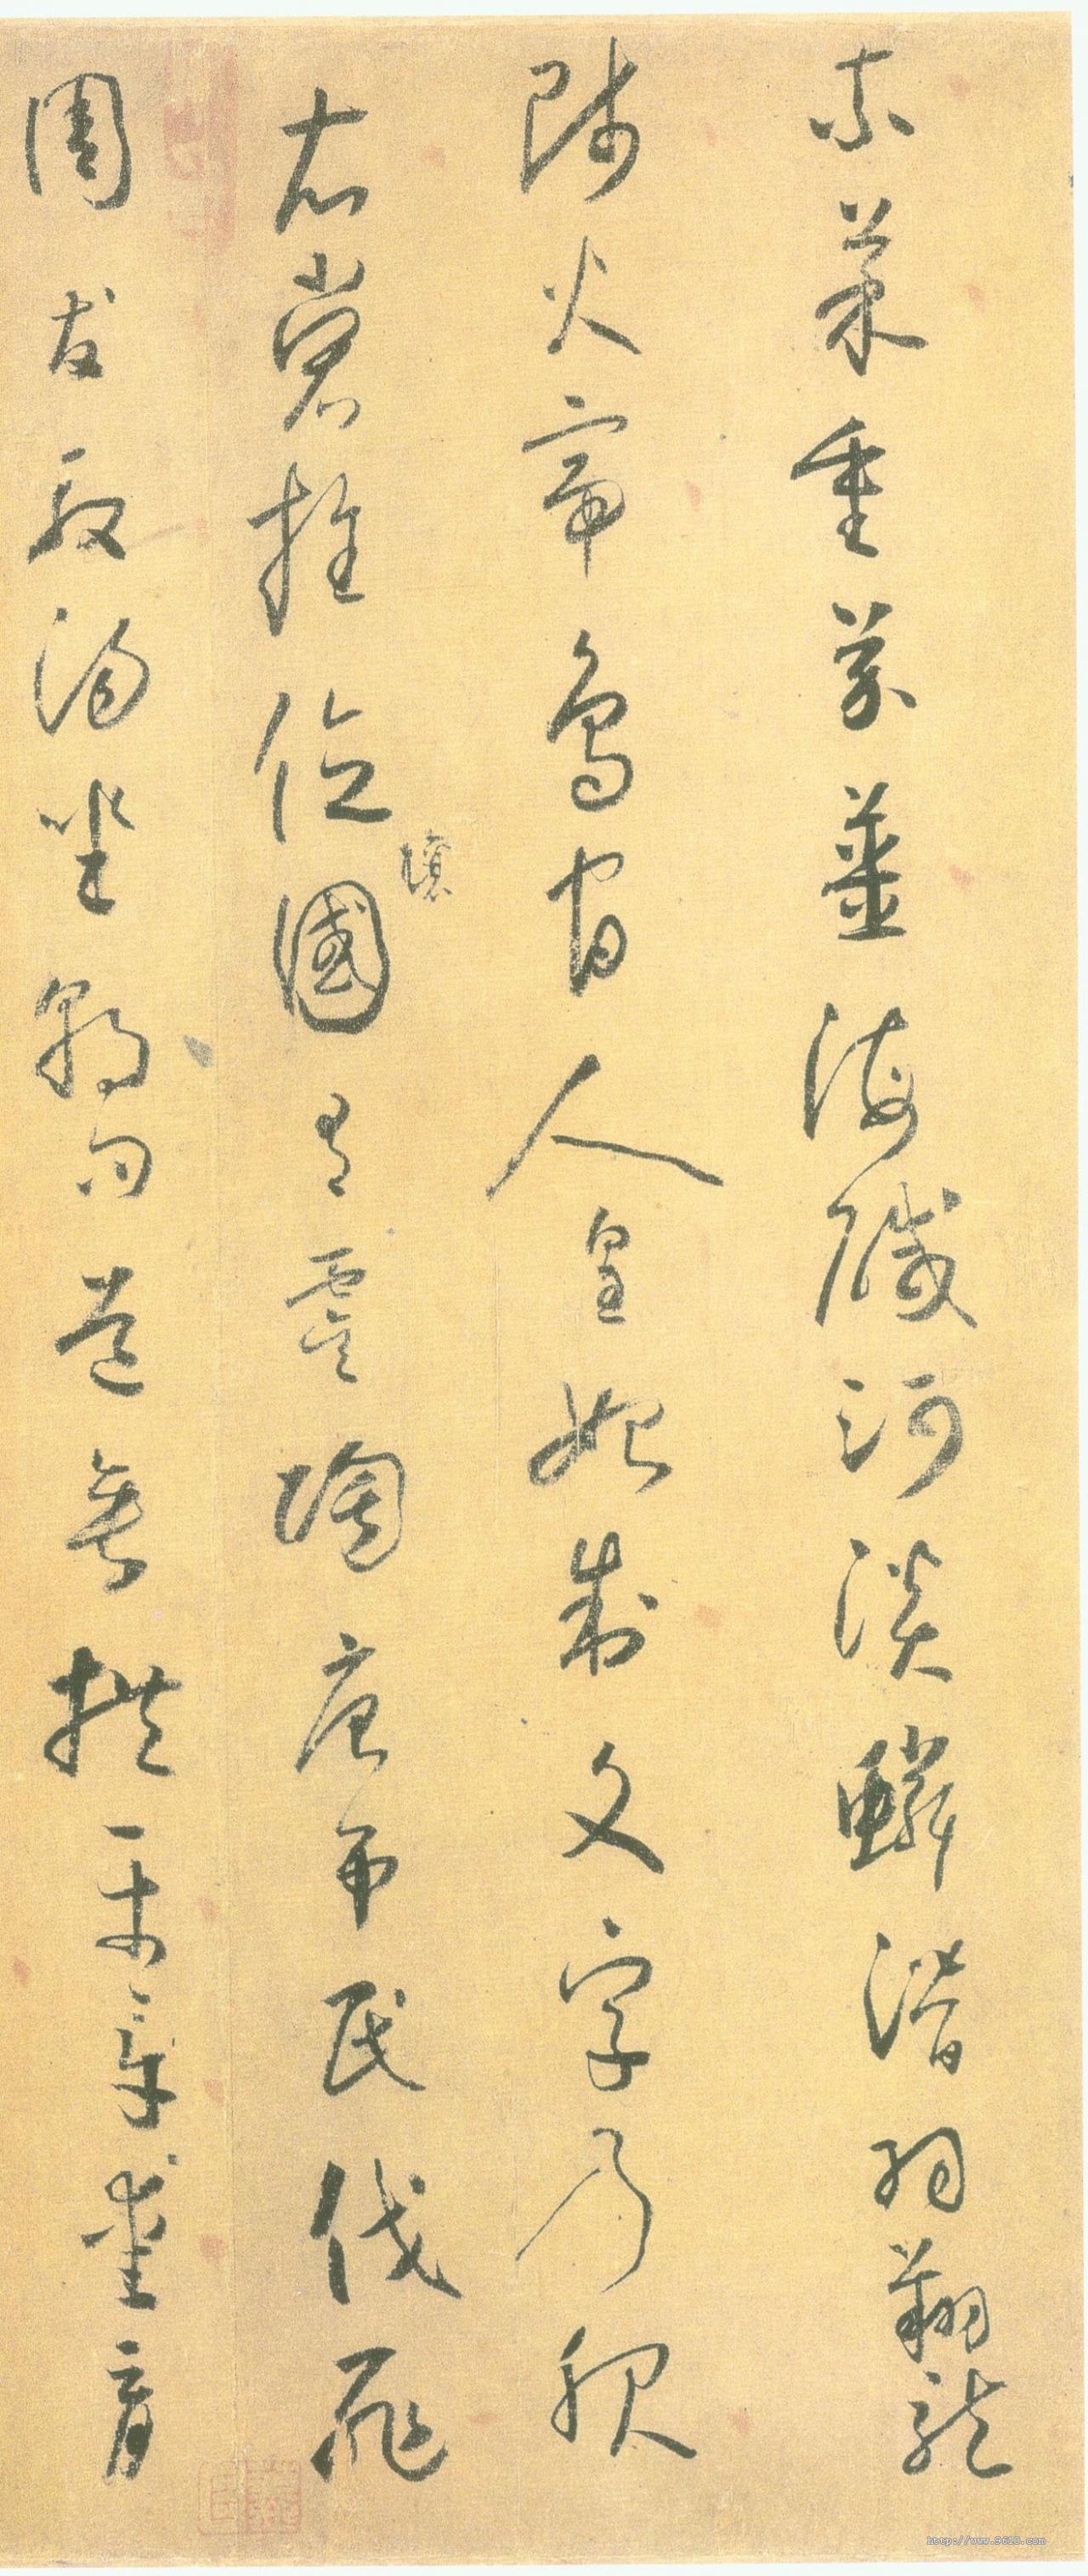 柰菜重芥薑海鹹河淡鱗潛羽翔龍
師火帝鳥官人皇始制文字乃服
衣裳推位讓國有虞陶唐弔民伐罪
周發殷湯坐朝問道垂拱平章愛育
http://www.9610.com